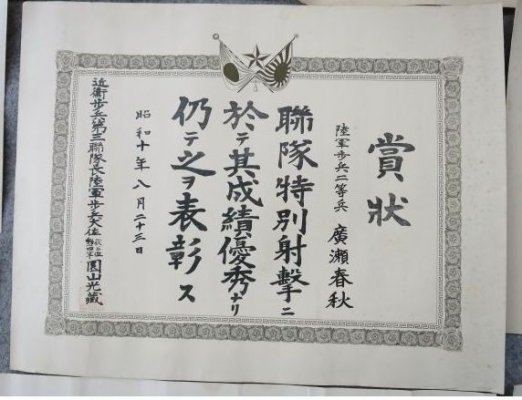 賞狀
陸軍歩兵二等兵 廣瀬春秋
聯隊特別射擊ニ
於テ其成績優秀ナリ
仍テ之ヲ表彰ス
昭和十年八月二十三日
近衛歩兵第三聯隊長陸軍歩兵大佐 園山光藏